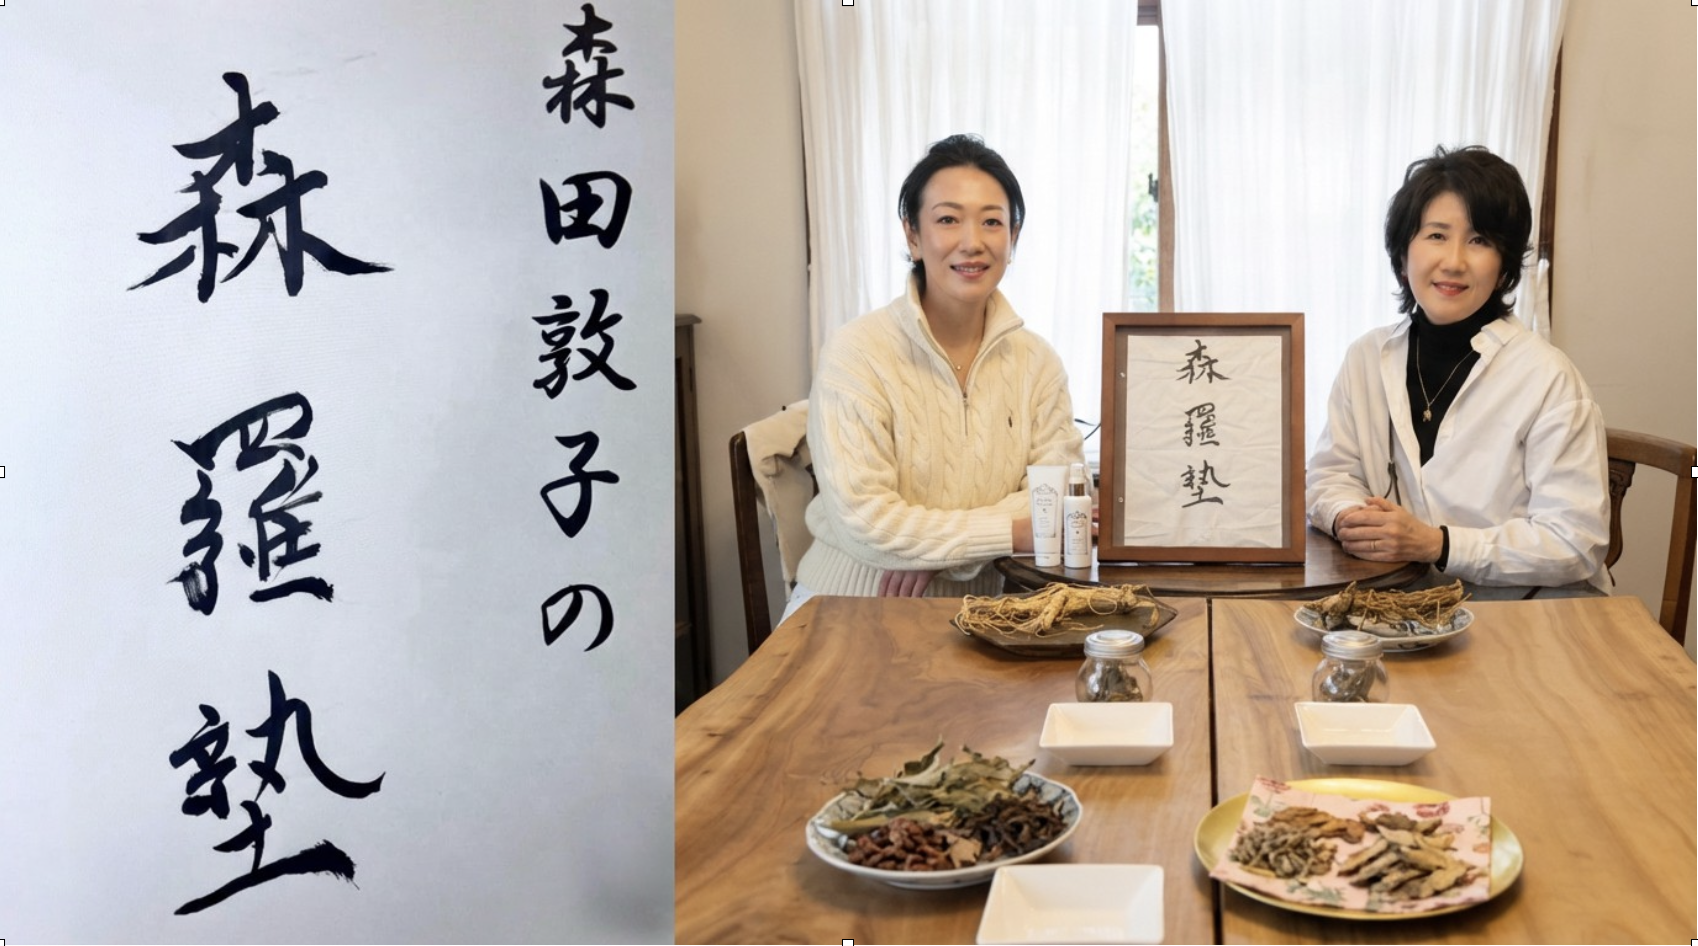 森田敦子の
森羅塾
森羅塾